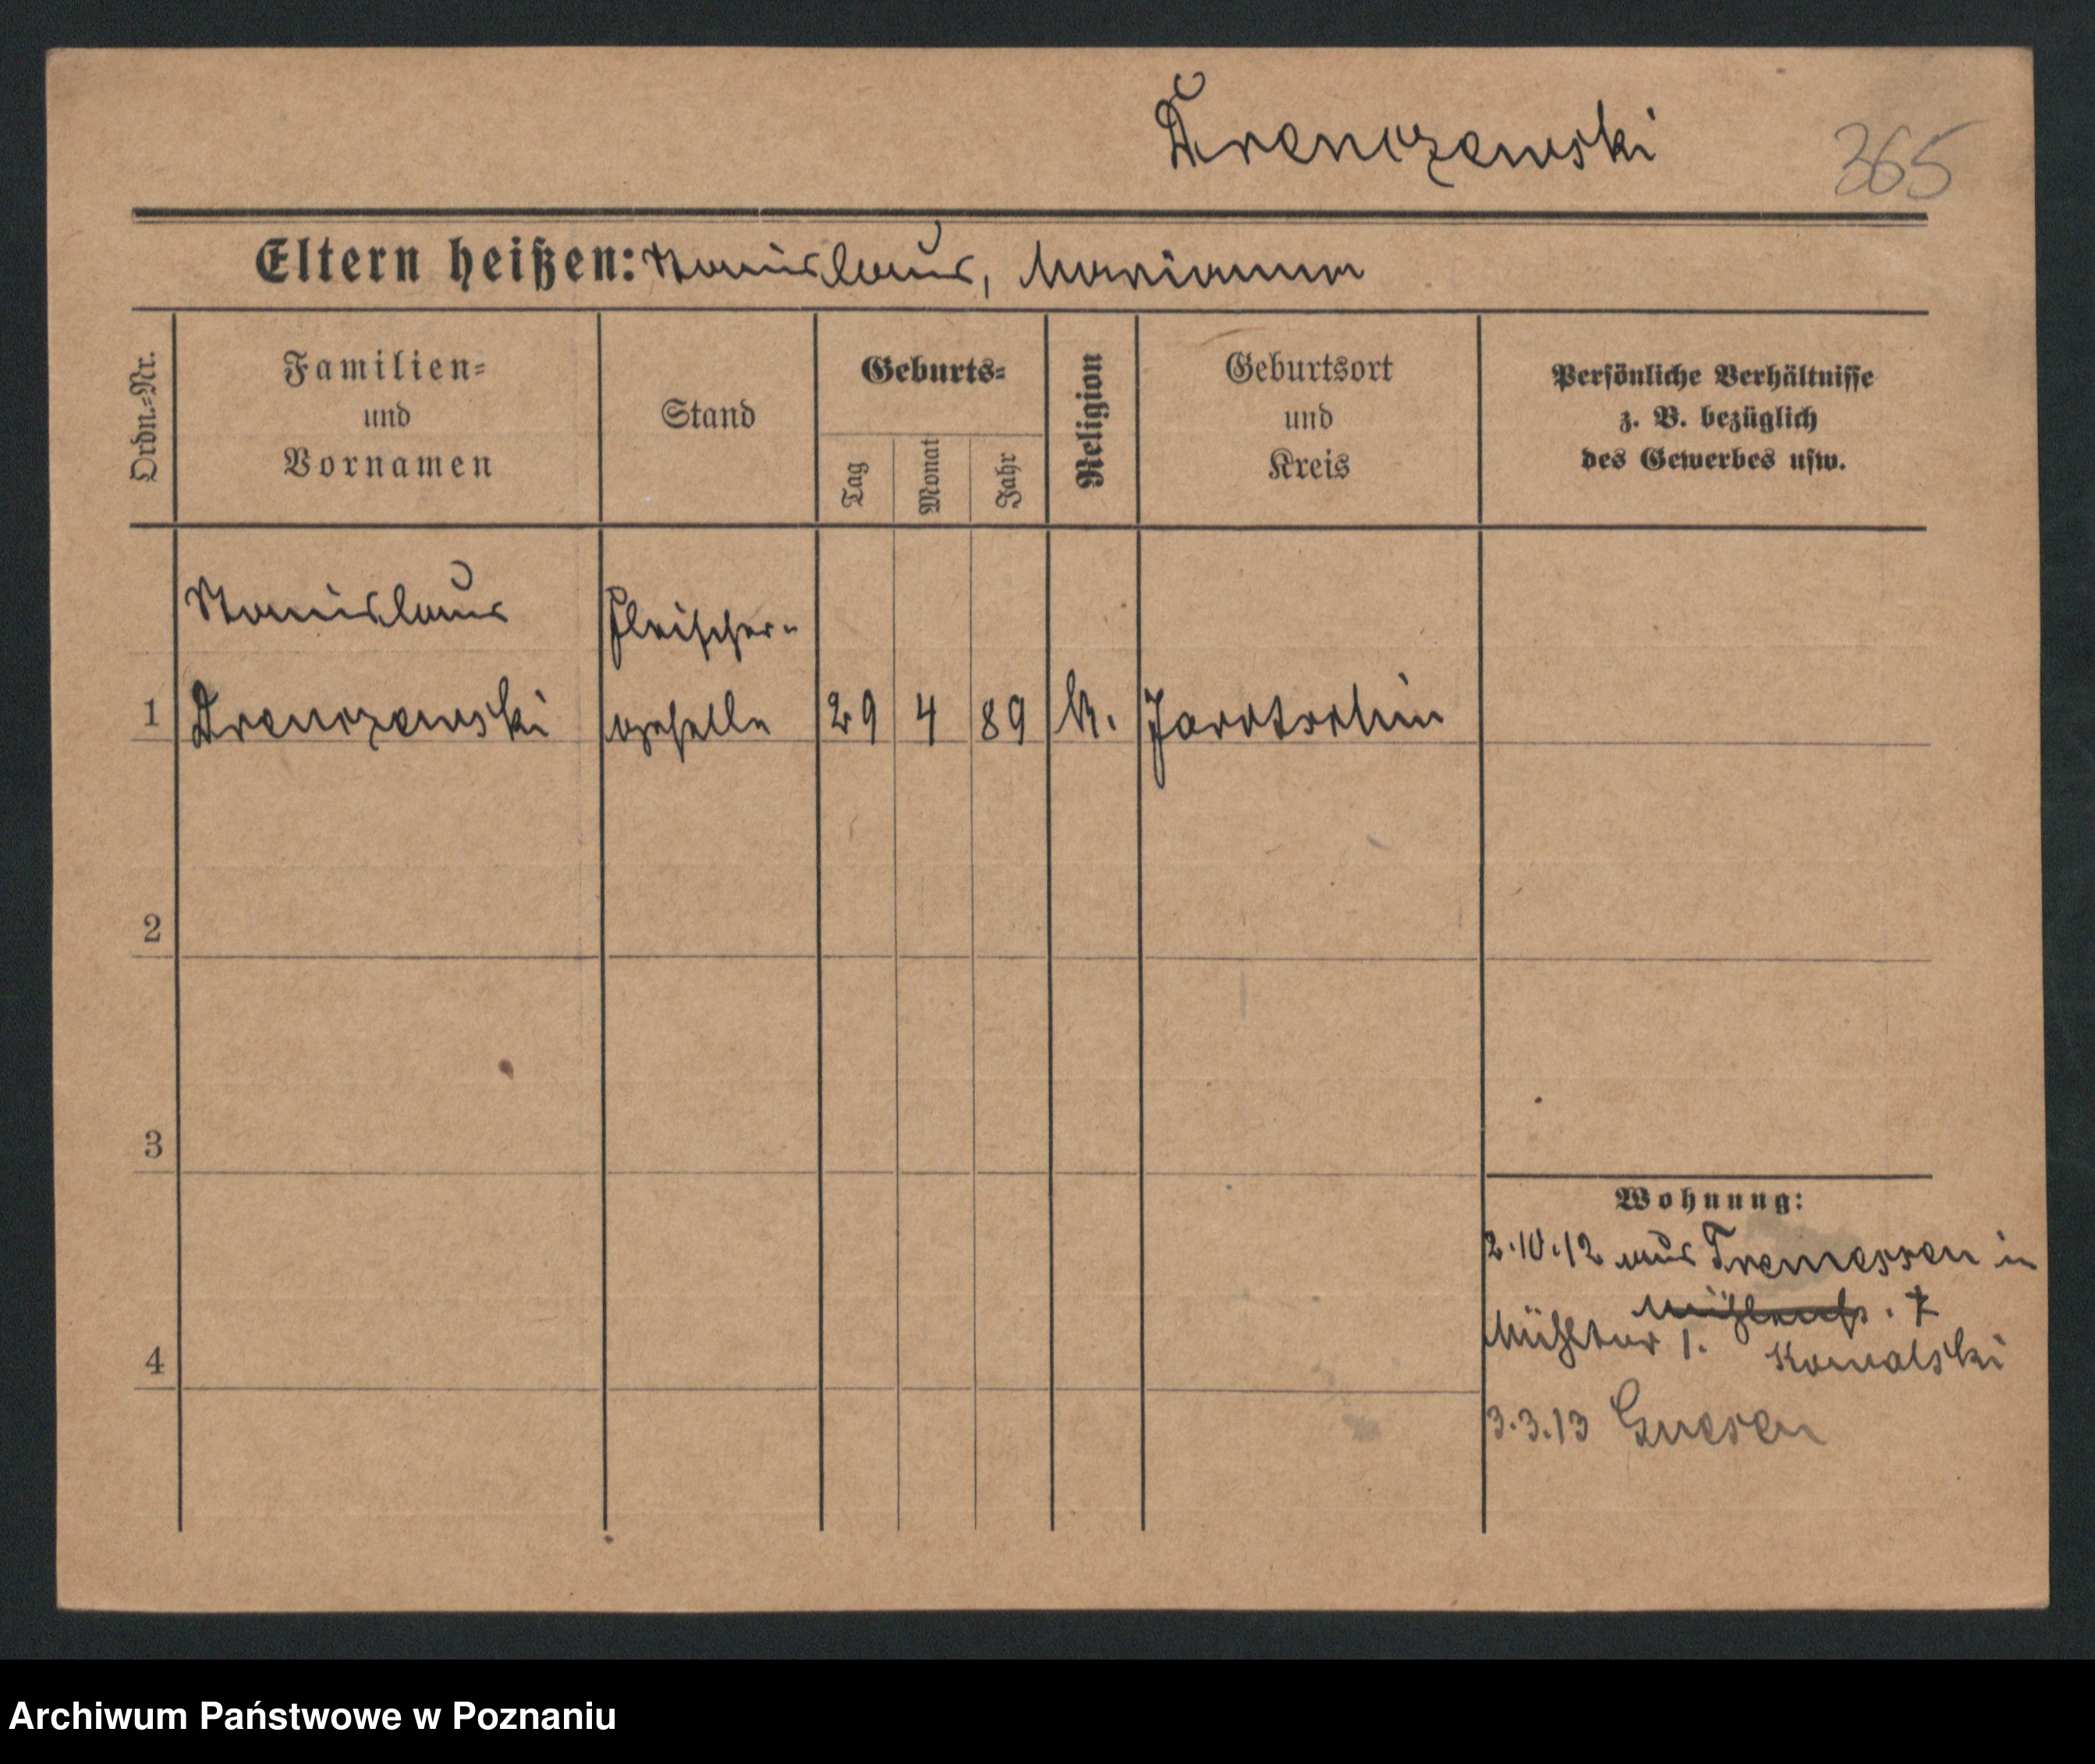 Drenczewski
365
Eltern heißen: Stanislaus, Marianna
Ordn.-Nr.
Familien-
und
Vornamen
Stand
Geburts-
Tag
Monat
Jahr
Religion
Geburtsort
und
Kreis
Persönliche Verhältnisse
z. B. bezüglich
des Gewerbes usw.
Stanislaus
Fleischer-
1 Drenczewski geselle 29 4 89 k. Jarotschin
2
3
4
Wohnung:
2.10.12 aus Tremessen in
Mühlenstr. 7
Mühltor 1. Kowalski
3.3.13 Gnesen
Archiwum Państwowe w Poznaniu